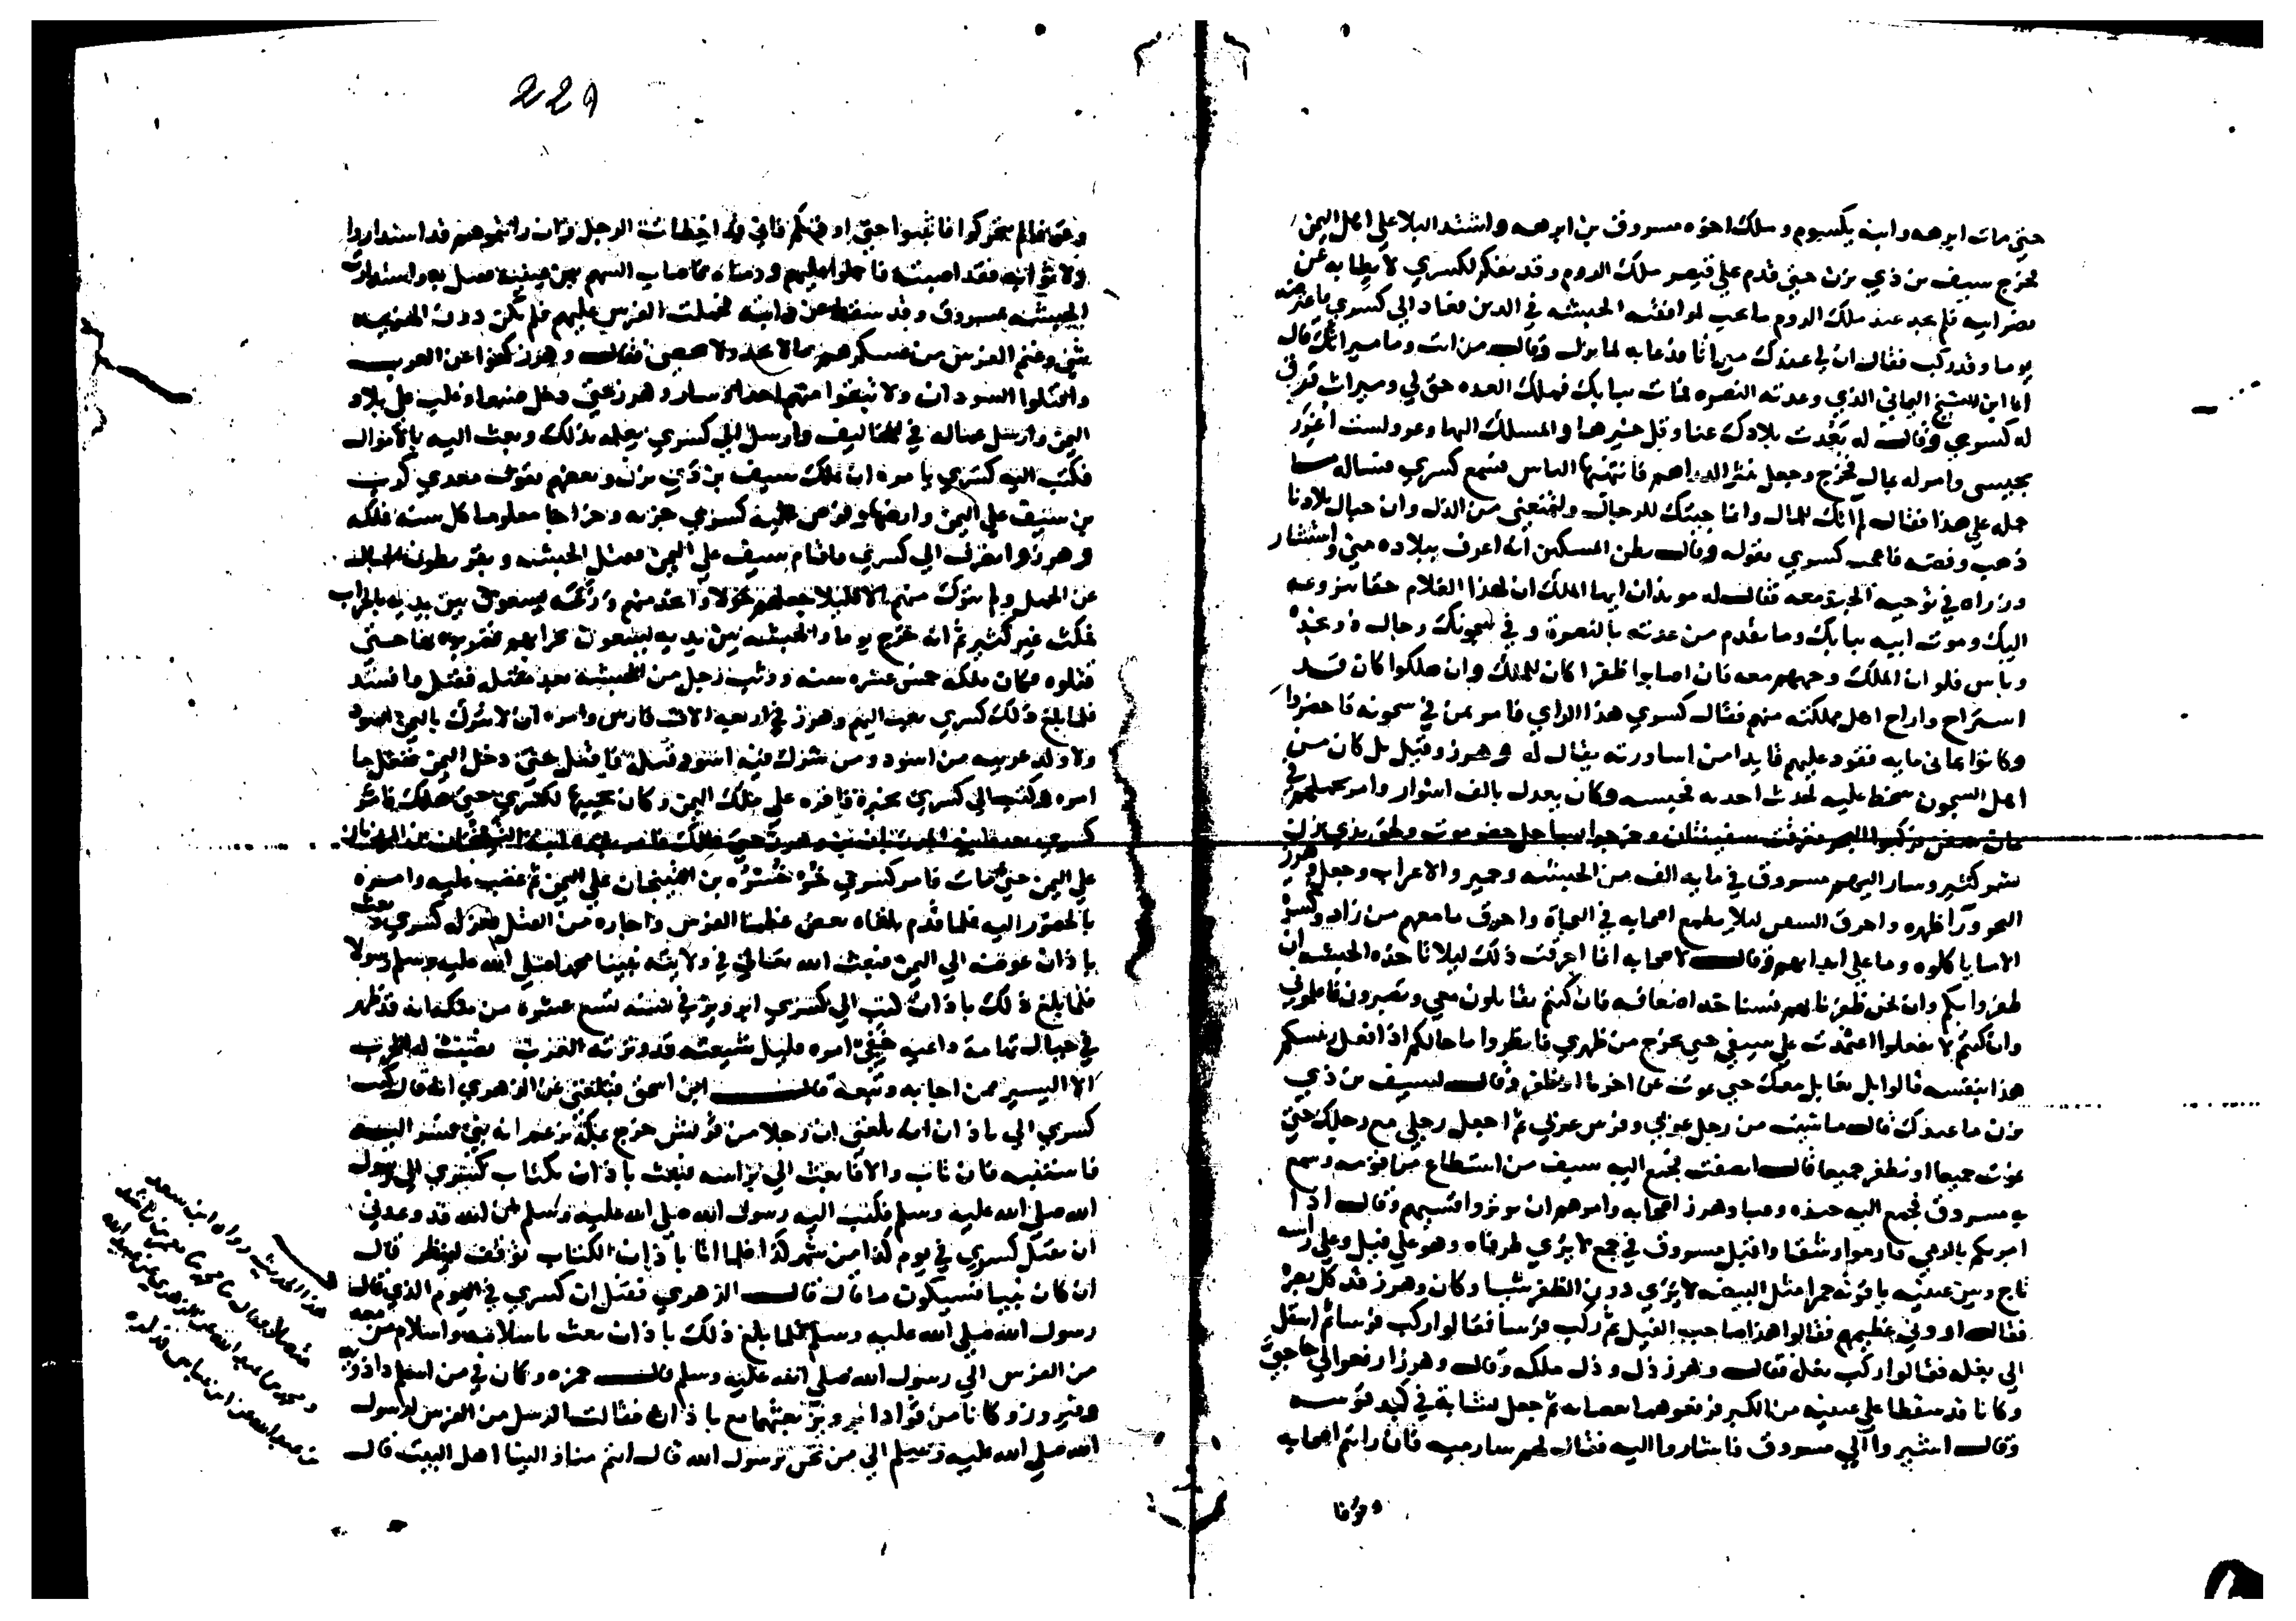 حتى مات ابرهه وابنه يكسوم وملك اخوه مسروق بن ابرهه واشتد البلا على اهل اليمن
فخرج سيف بن ذي يزن حتى قدم على قيصر ملك الروم وقد تفكر لكسرى لا بطايه عن
نصر ابيه فلم يجد عند ملك الروم ما يحب لموافقته الحبشه في الدين فعاد الى كسرى فاعترضه
يوما وقد ركب فقال ان لي عندك ميراثا فدعا به لما نزل وقال من انت وما ميراثك قال
انا ابن الشيخ اليماني الذي وعدته النصره فمات ببابك فتلك العده حق لي وميراث فرق
له كسرى وقال له بعدت بلادك عنا وقل خيرها والمسلك اليها وعر ولست اغرر
بجيشي وامر له بمال فخرج وجعل ينثر الدراهم فانتهبها الناس فسمع كسرى فساله ما
حمله على هذا فقال لم اتك للمال وانما جيتك للرجال ولتمنعني من الذل وان جبال بلادنا
ذهب وفضه فاعجب كسرى بقوله وقال يظن المسكين انه اعرف ببلاده مني واستشار
وزراه في توجيه الجند معه فقال له موبذان ايها الملك ان لهذا الغلام حقا بنزوعه
اليك وموت ابيه ببابك وما تقدم من عدته بالنصرة وفي سجونك رجال ذو نجده
وباس فلو ان الملك وجههم معه فان اصابوا ظفرا كان للملك وان هلكوا كان قد
استراح واراح اهل مملكته منهم فقال كسرى هذا الراي فامر بمن في سجونه فاحضروا
وكانوا ثمانى مايه فقود عليهم قايدا من اساورته يقال له وهرز وقيل بل كان من
اهل السجون سخط عليه لحدث احدثه فحبسه وكان يعدل بالف اسوار وامر بحملهم في
ثمان سفن فركبوا البحر فغرقت سفينتان وخرجوا بساحل حضرموت ولحق بذي يزن
بشر كثير وسار اليهم مسروق في مايه الف من الحبشه وحمير والاعراب وجعل وهرز
البحر ورآ ظهره واحرق السفن ليلا يطمع اصحابه في النجاة واحرق ما معهم من زاد وكسوة
الا ما ياكلوه وما على ابدانهم وقال لاصحابه انما احرقت ذلك ليلا تاخذه الحبشه ان
ظفروا بكم وان نحن ظفرنا بهم فسناخذ اضعافه فان كنتم تقاتلون معي وتصبرون فاعلموني
وان كنتم لا تفعلوا اعتمدت على سيفي حتى يخرج من ظهري فانظروا ما حالكم اذا فعل رئيسكم
هذا بنفسه قالوا بل نقاتل معك حتى نموت عن اخرنا او نظفر وقال لسيف بن ذي
يزن ما عندك قال ما شيت من رجل عربي وفرس عربي ثم اجعل رجلي مع رجلك حتى
نموت جميعا او نظفر جميعا قال انصفت فجمع اليه سيف من استطاع من قومه وسمع
به مسروق فجمع اليه جنده وعبا وهرز اصحابه وامرهم ان يوتروا قسيهم وقال اذا
امرتكم بالرمي فارموا رشقا واقبل مسروق في جمع لا يرى طرفاه وهو على فيل وعلى راسه
تاج وبين عينيه ياقوته حمرا مثل البيضه لا يرى دون الظفر شيا وكان وهرز قد كل بصره
فقال اروني عظيمهم فقالوا هذا صاحب الفيل ثم ركب فرسا فقالوا ركب فرسا ثم انتقل
الى بغله فقالوا ركب بغله فقال وهرز ذل وذل ملكه وقال وهرز ارفعوا لي حاجبي
وكانا قد سقطا على عينيه من الكبر فرفعوهما بعصابه ثم جعل نشابة في كبد قوسه
وقال اشيروا الي مسروق فاشاروا اليه فقال لهم سارميه فان رايتم اصحابه
وقوفا
229
وقوفا لم يتحركوا فاثبتوا حتى اوذنكم فاني قد اخطات الرجل وان رايتموهم قد استداروا
ولاثوا به فقد اصبته فاحملوا عليهم ورماه فاصاب السهم بين عينيه فعمل به واستدارت
الحبشه بمسروق وقد سقط عن دابته فحملت الفرس عليهم فلم يكن دون الهزيمه
شي وغنم الفرس من عسكرهم ما لا يحد ولا يحصى فقال وهرز كفوا عن العرب
واقتلوا السودان ولا تبقوا منهم احدا وسار وهرز حتى دخل صنعا وغلب على بلاد
اليمن وارسل عماله في المخاليف وارسل الى كسرى يعلمه بذلك وبعث اليه بالاموال
فكتب اليه كسرى يامره ان يملك سيف بن ذي يزن وبعضهم يقول معدي كرب
بن سيف على اليمن وارضها وفرض عليه كسرى جزيه وخراجا معلوما كل سنه فملكه
وهرز وانصرف الى كسرى فاقام سيف على اليمن يقتل الحبشه ويبقر بطون الحبالى
عن الحمل ولم يترك منهم الا قليلا جعلهم خولا واتخذ منهم جمازين يسعون بين يديه بالحراب
فمكث غير كثير ثم انه خرج يوما والحبشه بين يديه يسعون بحرابهم فضربوه بها حتى
قتلوه فكان ملكه خمس عشره سنه ووثب رجل من الحبشه بعد مقتله فقتل وافسد
فلما بلغ ذلك كسرى بعث اليهم وهرز في اربعه الاف فارس وامره ان لا يترك باليمن اسود
ولا ولد عربيه من اسود ومن شرك فيه اسود قتله فاقبل حتى دخل اليمن ففعل ما
امره وكتب الى كسرى بخبره فاقره على ملك اليمن وكان يجبيها لكسرى حتى هلك فامر
على اليمن حتى مات فامر كسرى خر خسره بن البينجان على اليمن ثم غضب عليه وامره
بالحضور اليه فلما قدم تلقاه بعض عظما الفرس واجاره من القتل فعزله كسرى وبعث
باذان عوضه الى اليمن فبعث الله تعالى في ولايته نبينا محمدا صلى الله عليه وسلم رسولا
فلما بلغ ذلك باذان كتب الى كسرى ابرويز في سنه تسع عشره من ملكه انه قد ظهر
في جبال تهامة داعيه خفي امره قليل شيعته قد وترته العرب لم
الا اليسير ممن اجابه وتبعه قال ابن اسحق فبلغني عن الزهري انه قال كتب
كسرى الى باذان انه بلغني ان رجلا من قريش خرج بمكة يزعم انه نبي فسر اليه
فاستتبه فان تاب والا فابعث الي براسه فبعث باذان بكتاب كسرى الى رسول
الله صلى الله عليه وسلم فكتب اليه رسول الله صلى الله عليه وسلم ان الله قد وعدني
ان يقتل كسرى في يوم كذا من شهر كذا فلما اتا باذان الكتاب توقف لينظر قال
ان كان نبيا فسيكون ما قال قال الزهري فقتل ان كسرى في اليوم الذي قال
رسول الله صلى الله عليه وسلم فلما بلغ ذلك باذان بعث باسلامه واسلام من معه
من الفرس الى رسول الله صلى الله عليه وسلم قال حمزه وكان في من اسلم داذويه
وفيروز وكانا من قواد ابرويز بعثهما مع باذان فقالت الرسل من الفرس لرسول
الله صلى الله عليه وسلم الى من نحن يرسول الله قال انتم منا والينا اهل البيت قال
هذا الحديث رواه ابن سعد